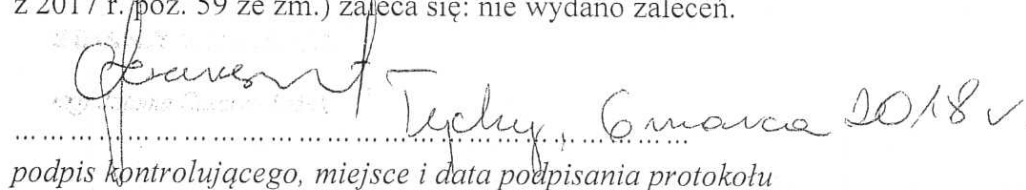 z 2017 r. poz. 59 ze zm.) zaleca się: nie wydano zaleceń.
Tychy, 6 marca 2018 r
podpis kontrolującego, miejsce i data podpisania protokołu